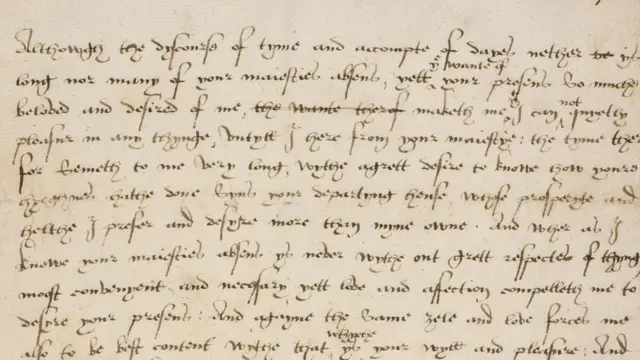 Althowgh the dyscourse of tyme and accompte of dayes nether be ys
long nor many of your maiesties absens, yett yͤ wante of your presens So muche
beloved and desired of me, the wante therof maketh me yᵗ I can not quyetly
pleasur in any thynge, untyll I here from your maiestye: the tyme ther
for Semeth to me very long, wythe a grett desire to knowe how youre
hyeghnes hathe done Syns your departyng hense, whose prosperyte and
helthe I prefer and desyre more than myne owne. And wher as I
knowe your maiesties absens ys never wythe out grett respectes of thyng
most convenyent and necessary yett love and affection compelleth me to
desyre your presens: And agayne the Same zele and love forces me
also to be best content wythe that whyche ys your wyll and pleasure: And